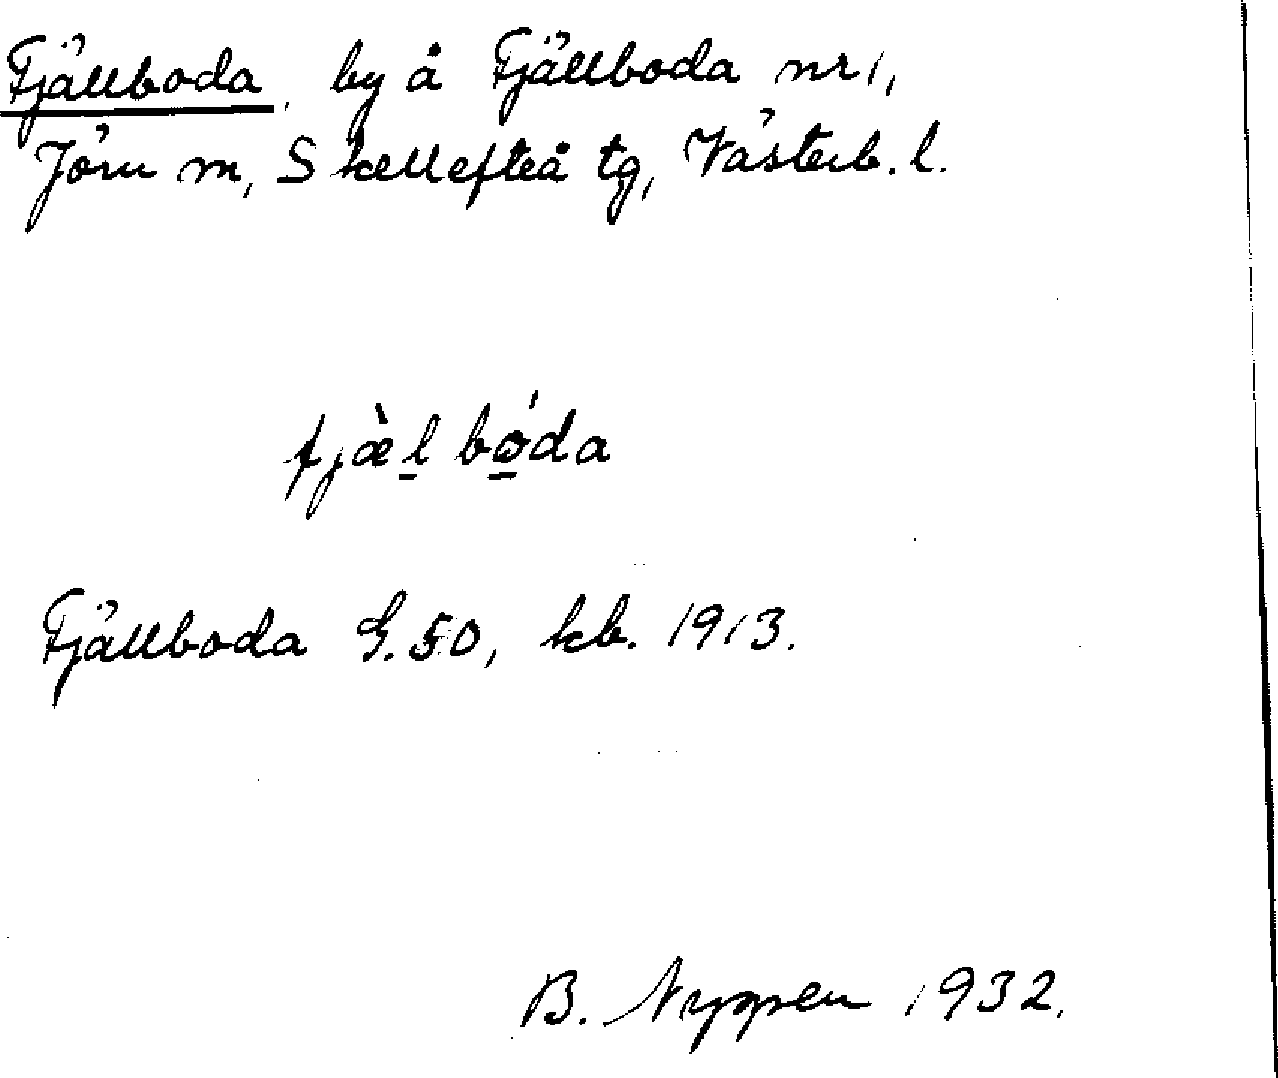 Fjällboda, by å Fjällboda nr 1,
Jörn sn, Skellefteå tg, Västerb. l.
fjæ̀l̲ bó̲da
Fjällboda G. 50, kb. 1913.
B. 1932.